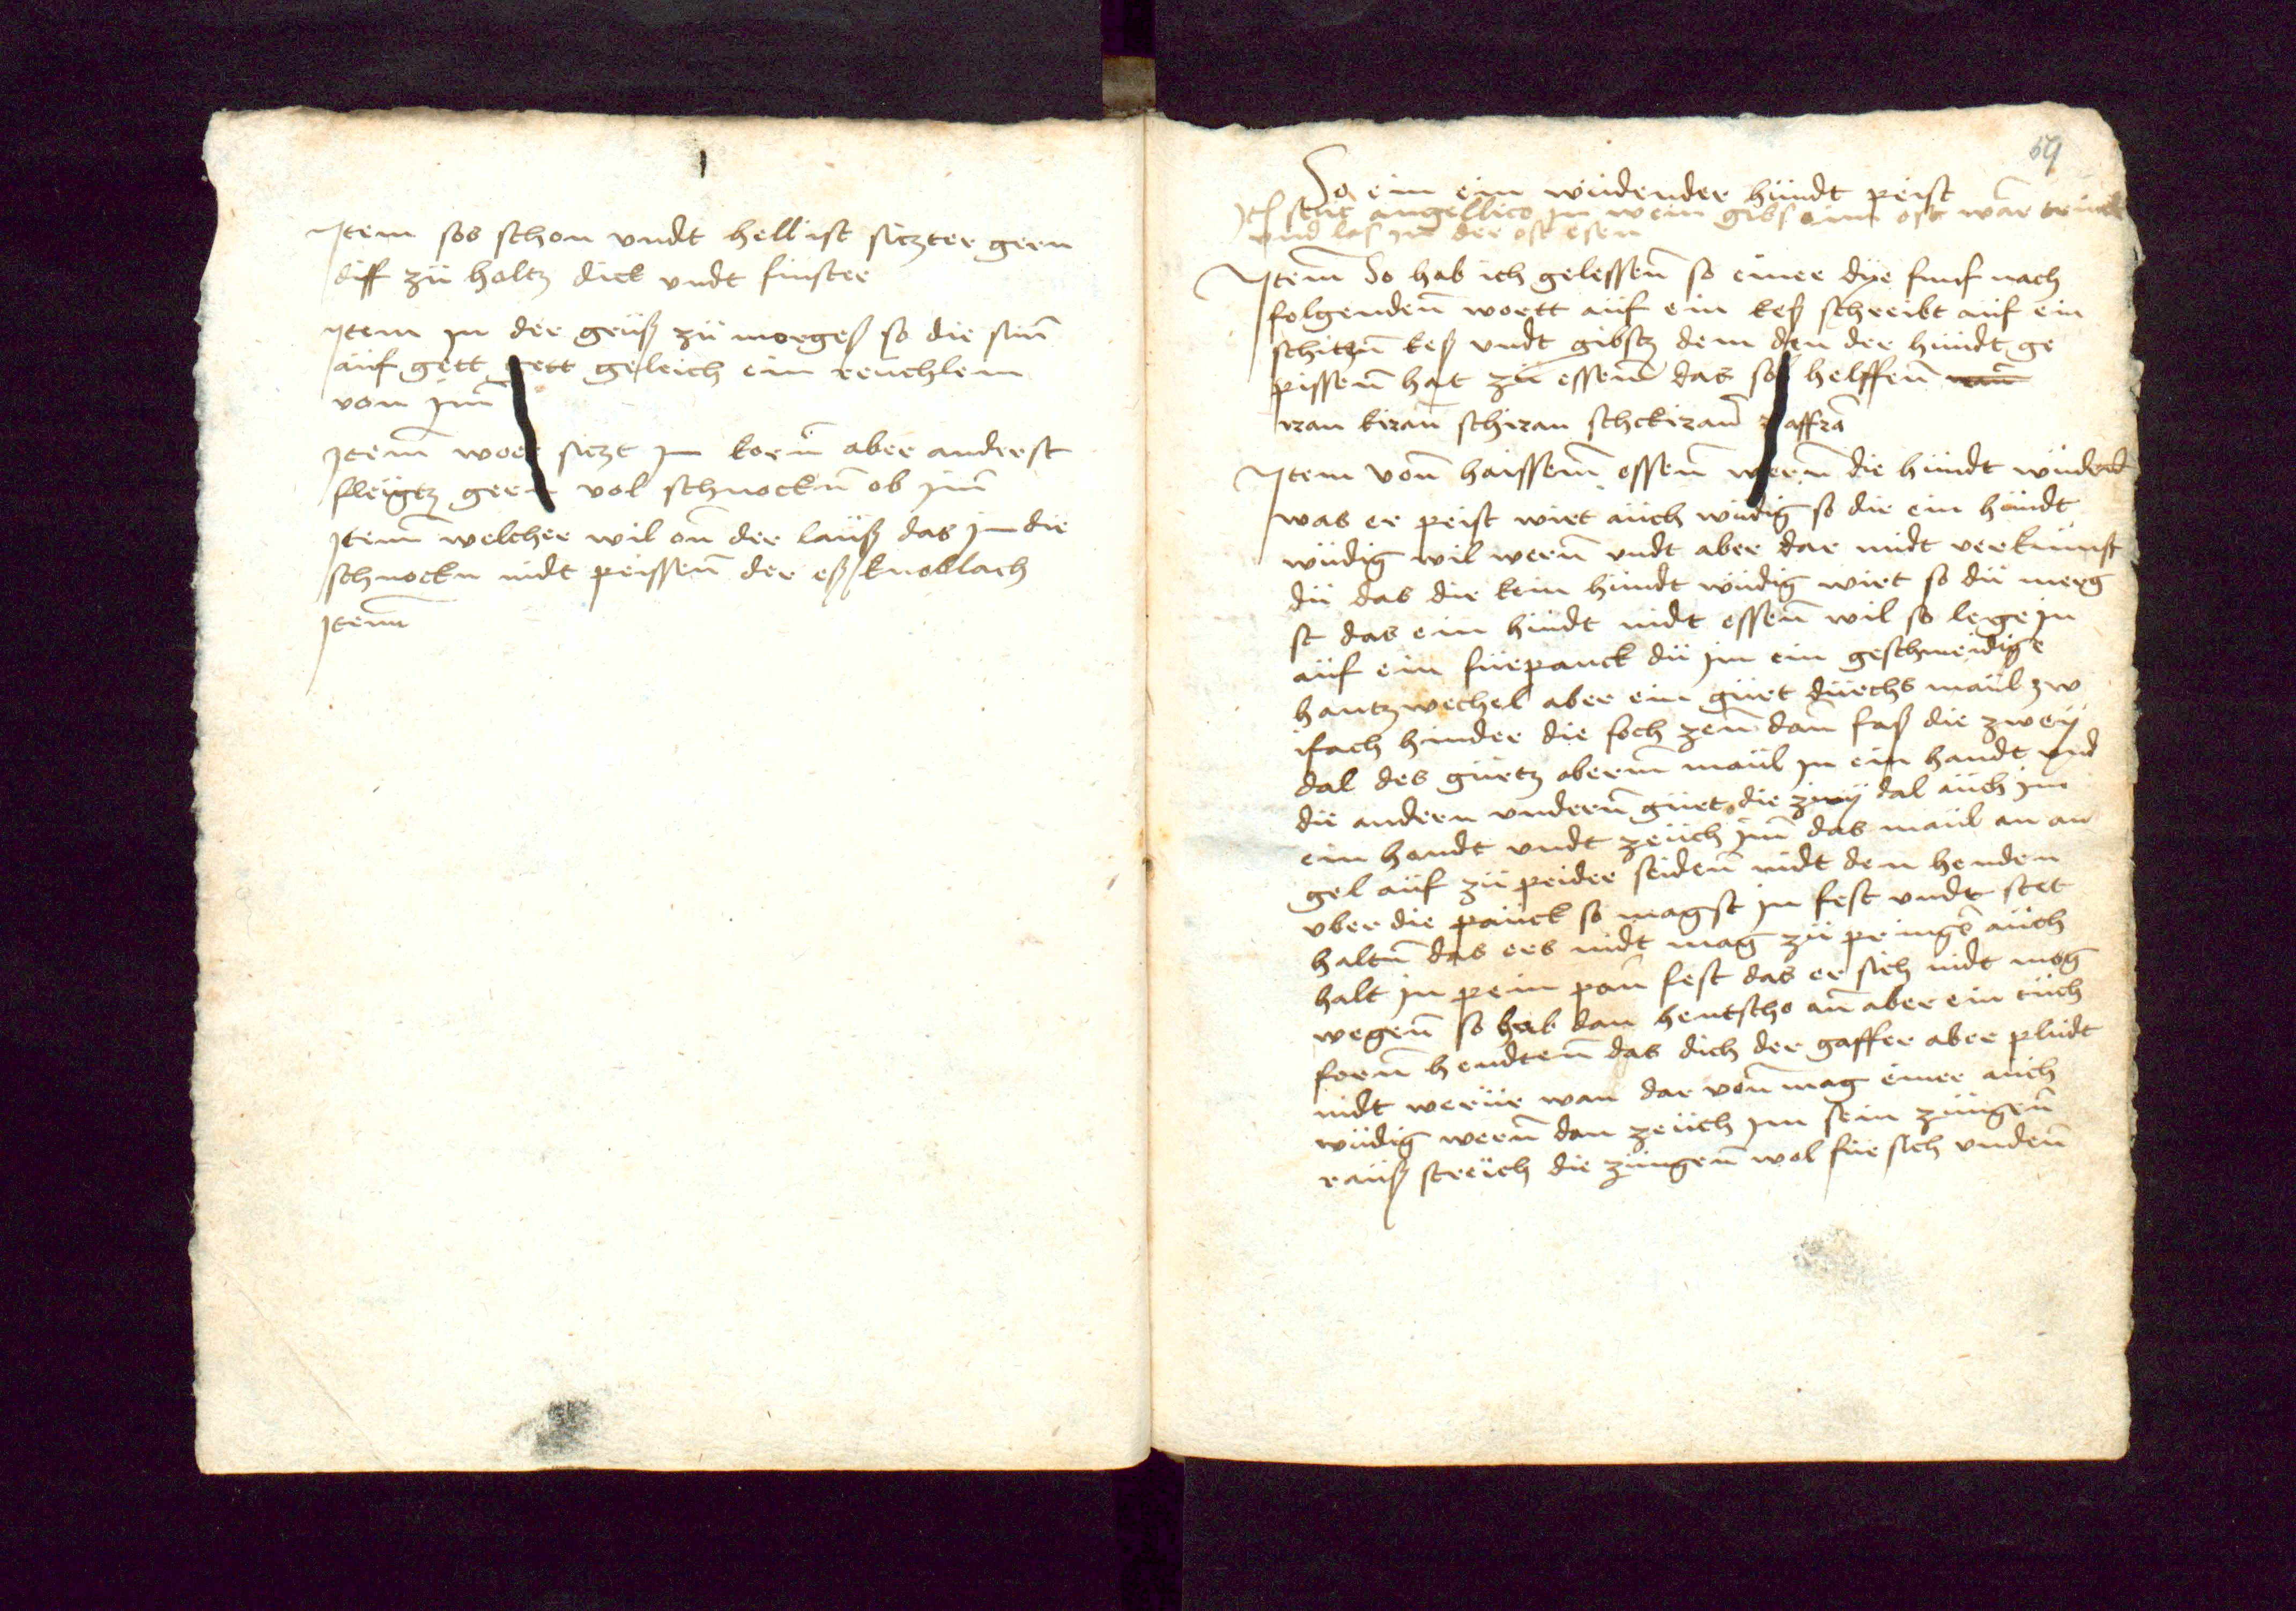 Item sos schon vndt hell ist sitzter gern
diff zü holtz dick vndt finster
Item in der grüß zü morgeß so die sün
auf gett gett geleich ein reuchlem
von im
Item woer sitzt im korn aber anderst
fleügtz gern vol schnockn ob im
Item welcher wil on der lauß das in die
schnockn nidt peissen der eß knoblach
Item
69
So ein ein wüdender hündt peist
angellica in wein gibs eim ost war
vnd las in der ost esen
Item So hab ich gelessen so einer dye funf nach
folgenden wortt auf ein keß schreibt auf ein
schitzn keß vndt gibstz dem den der hündt ge
pissen hat zü essen das sol helffen
iran kiran schiran schckiran
Item von haissem essen wern die hündt wüdend
was er peist wirt auch wüdig so die ein hündt
wüdig wil wern vndt aber dar midt verkumst
dü das die kein hündt wüdig wirt so dü merg
st das ein hündt nidt essen wil so lege in
auf ein fürpanck dü im ein geschmeidige
hantzwechel aber ein gürt dürchs maül zw
ifach hinder die soch zen dan faß die zwey
dal des gürtz oberm maül in ein handt vnd
die andern vndern gürt die zwy dal auch in
ein handt vndt zeüch im das maül an an
gel auf zü peider seiden midt den henden
vber die panck so magst in fest vndt stet
haltn das ers nidt mag zü pringe auch
halt in pein pan fest das er sich nidt mog
wegen so hab dan hentscho an aber ein tüch
forn hendten das dich der gaffer aber plüdt
nidt werür wan dar von mag einer auch
wüdig wern dan zeüch im sein züngen
rauß streich die züngen wol für sich vnden